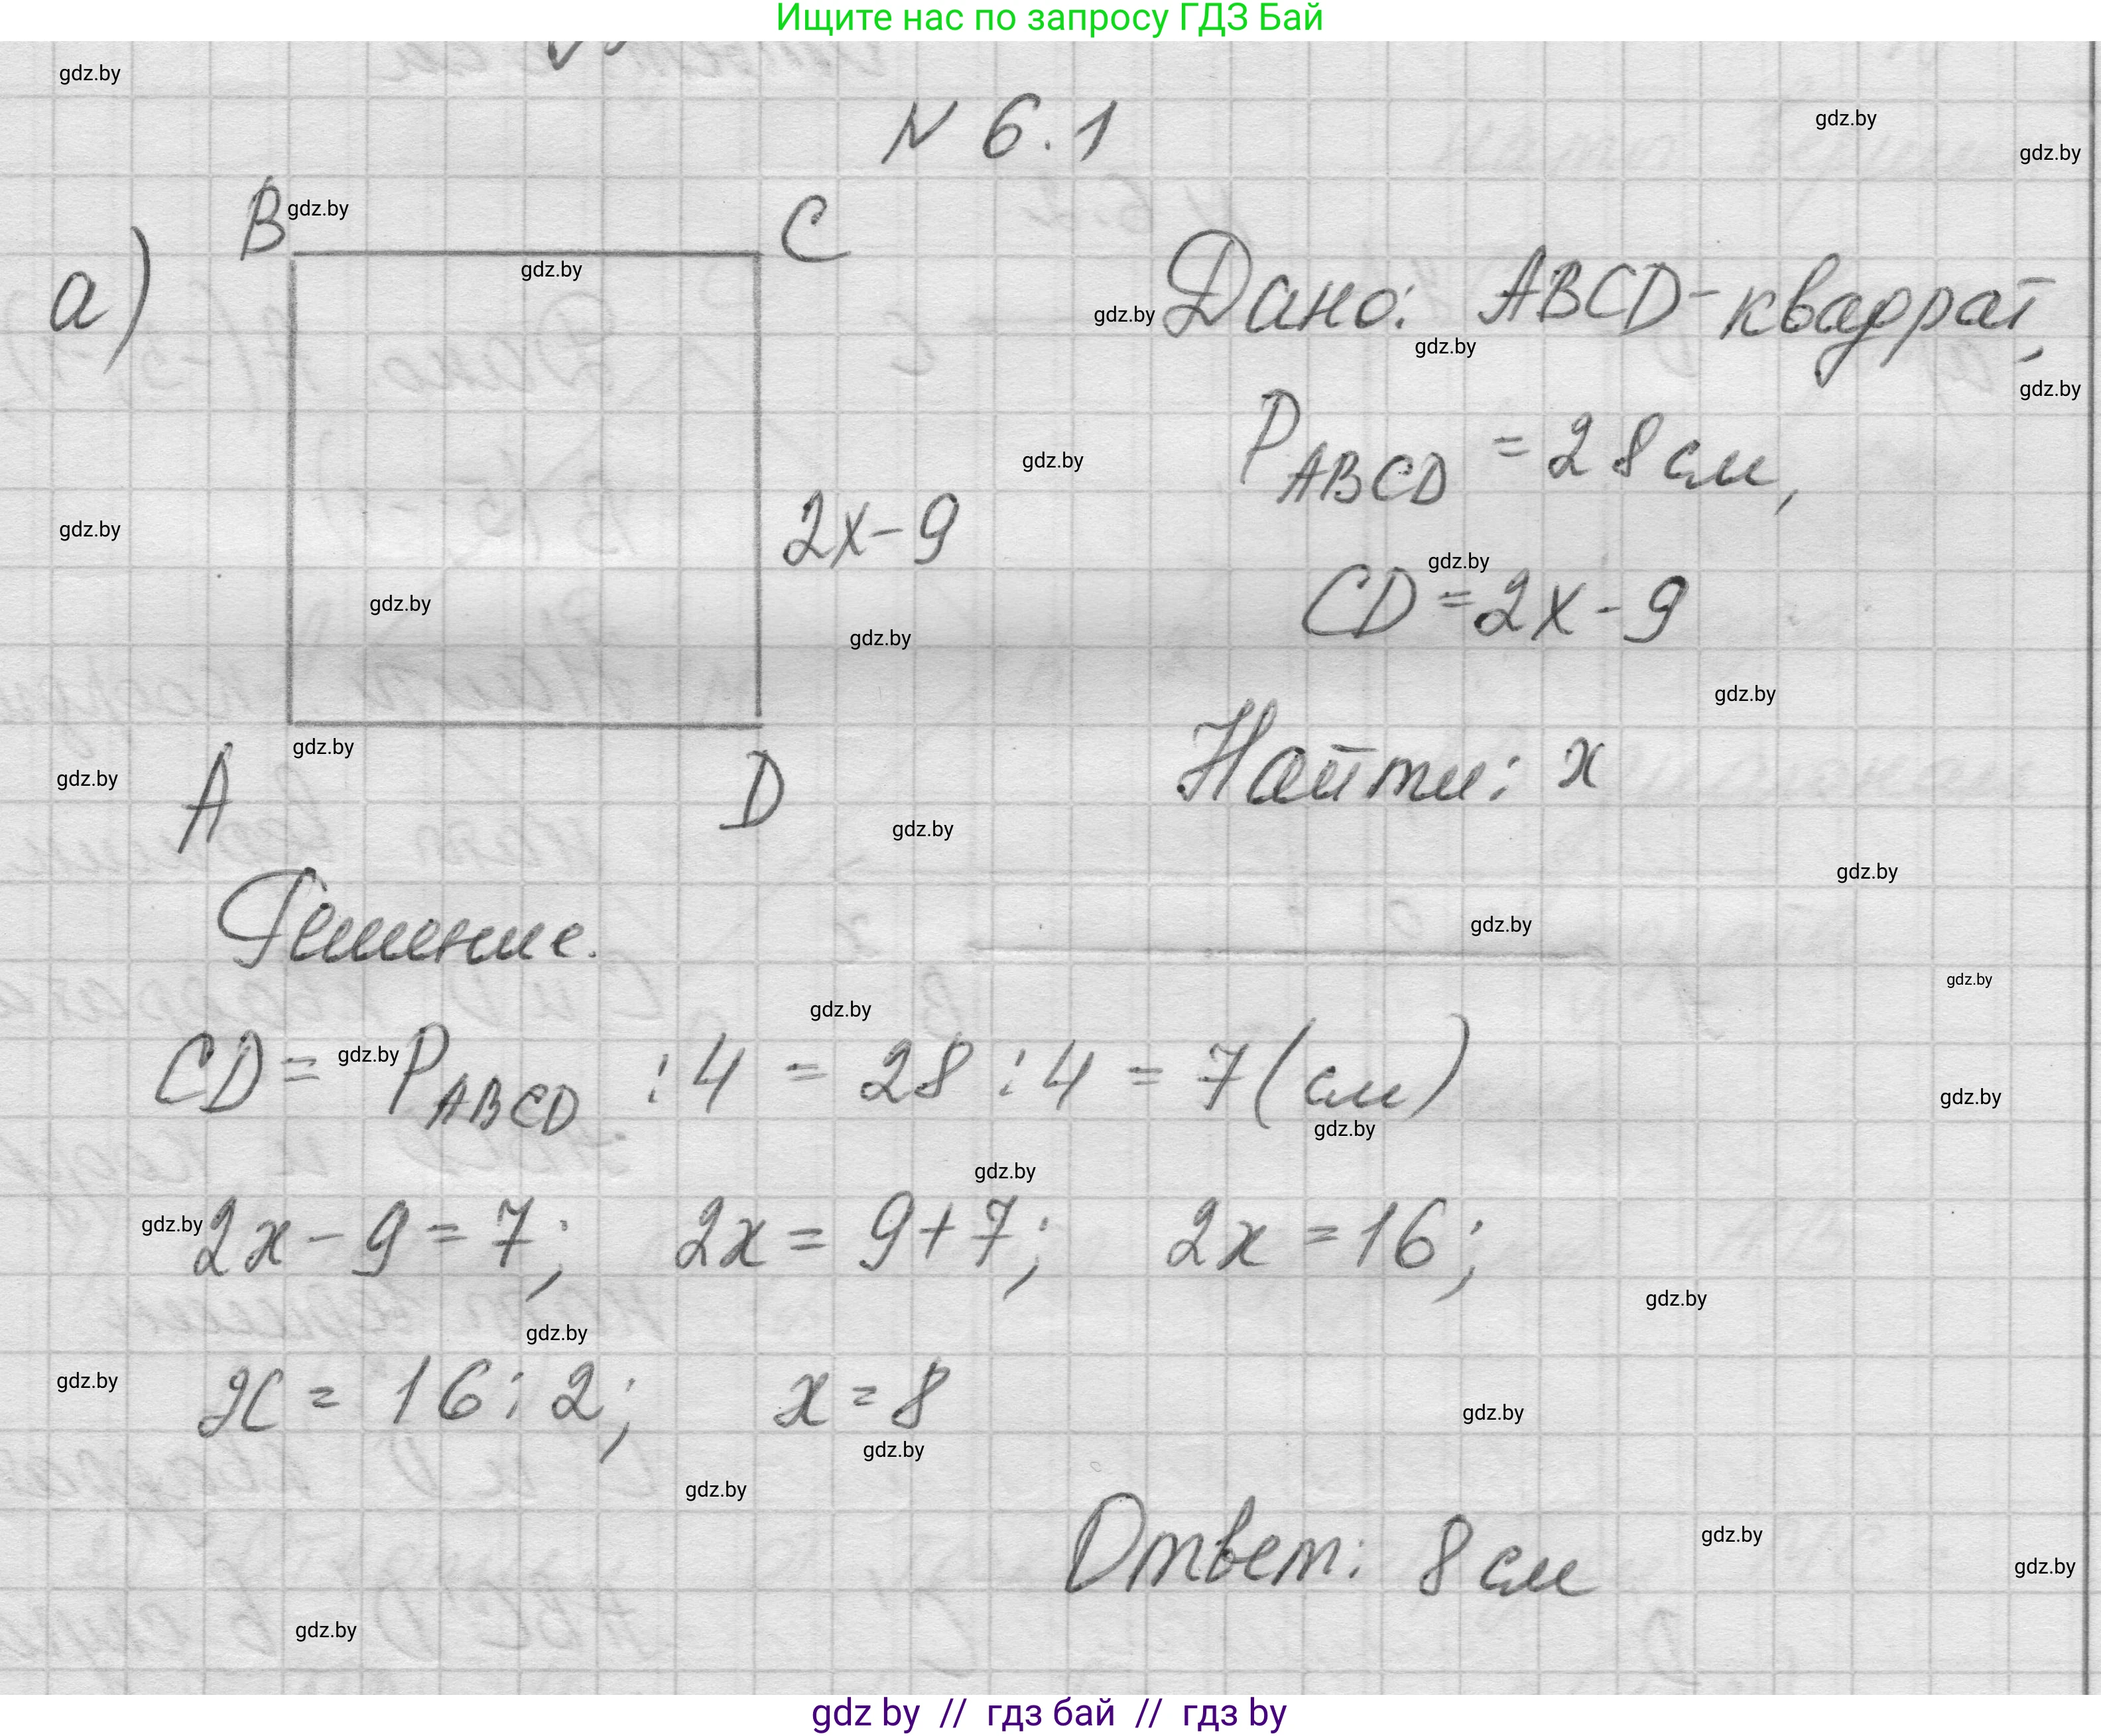 Ищите нас по запросу ГДЗ Бай
gdz.by
№ 6.1
gdz.by
gdz.by
а)
B
gdz.by
C
gdz.by
gdz.by
Дано: ABCD-квадрат,
gdz.by
gdz.by
P ABCD = 28 см,
gdz.by
gdz.by
2x-9
gdz.by
CD=2x-9
gdz.by
gdz.by
gdz.by
Найти: x
gdz.by
gdz.by
A
D
gdz.by
gdz.by
Решение.
gdz.by
gdz.by
gdz.by
CD= P ABCD :4 = 28 :4 = 7(см)
gdz.by
gdz.by
gdz.by
gdz.by
2x-9=7; 2x=9+7; 2x=16;
gdz.by
gdz.by
gdz.by
gdz.by
x= 16:2; x=8
gdz.by
gdz.by
gdz.by
Ответ: 8 см
gdz.by
gdz.by
gdz.by
gdz by // гдз бай // гдз by